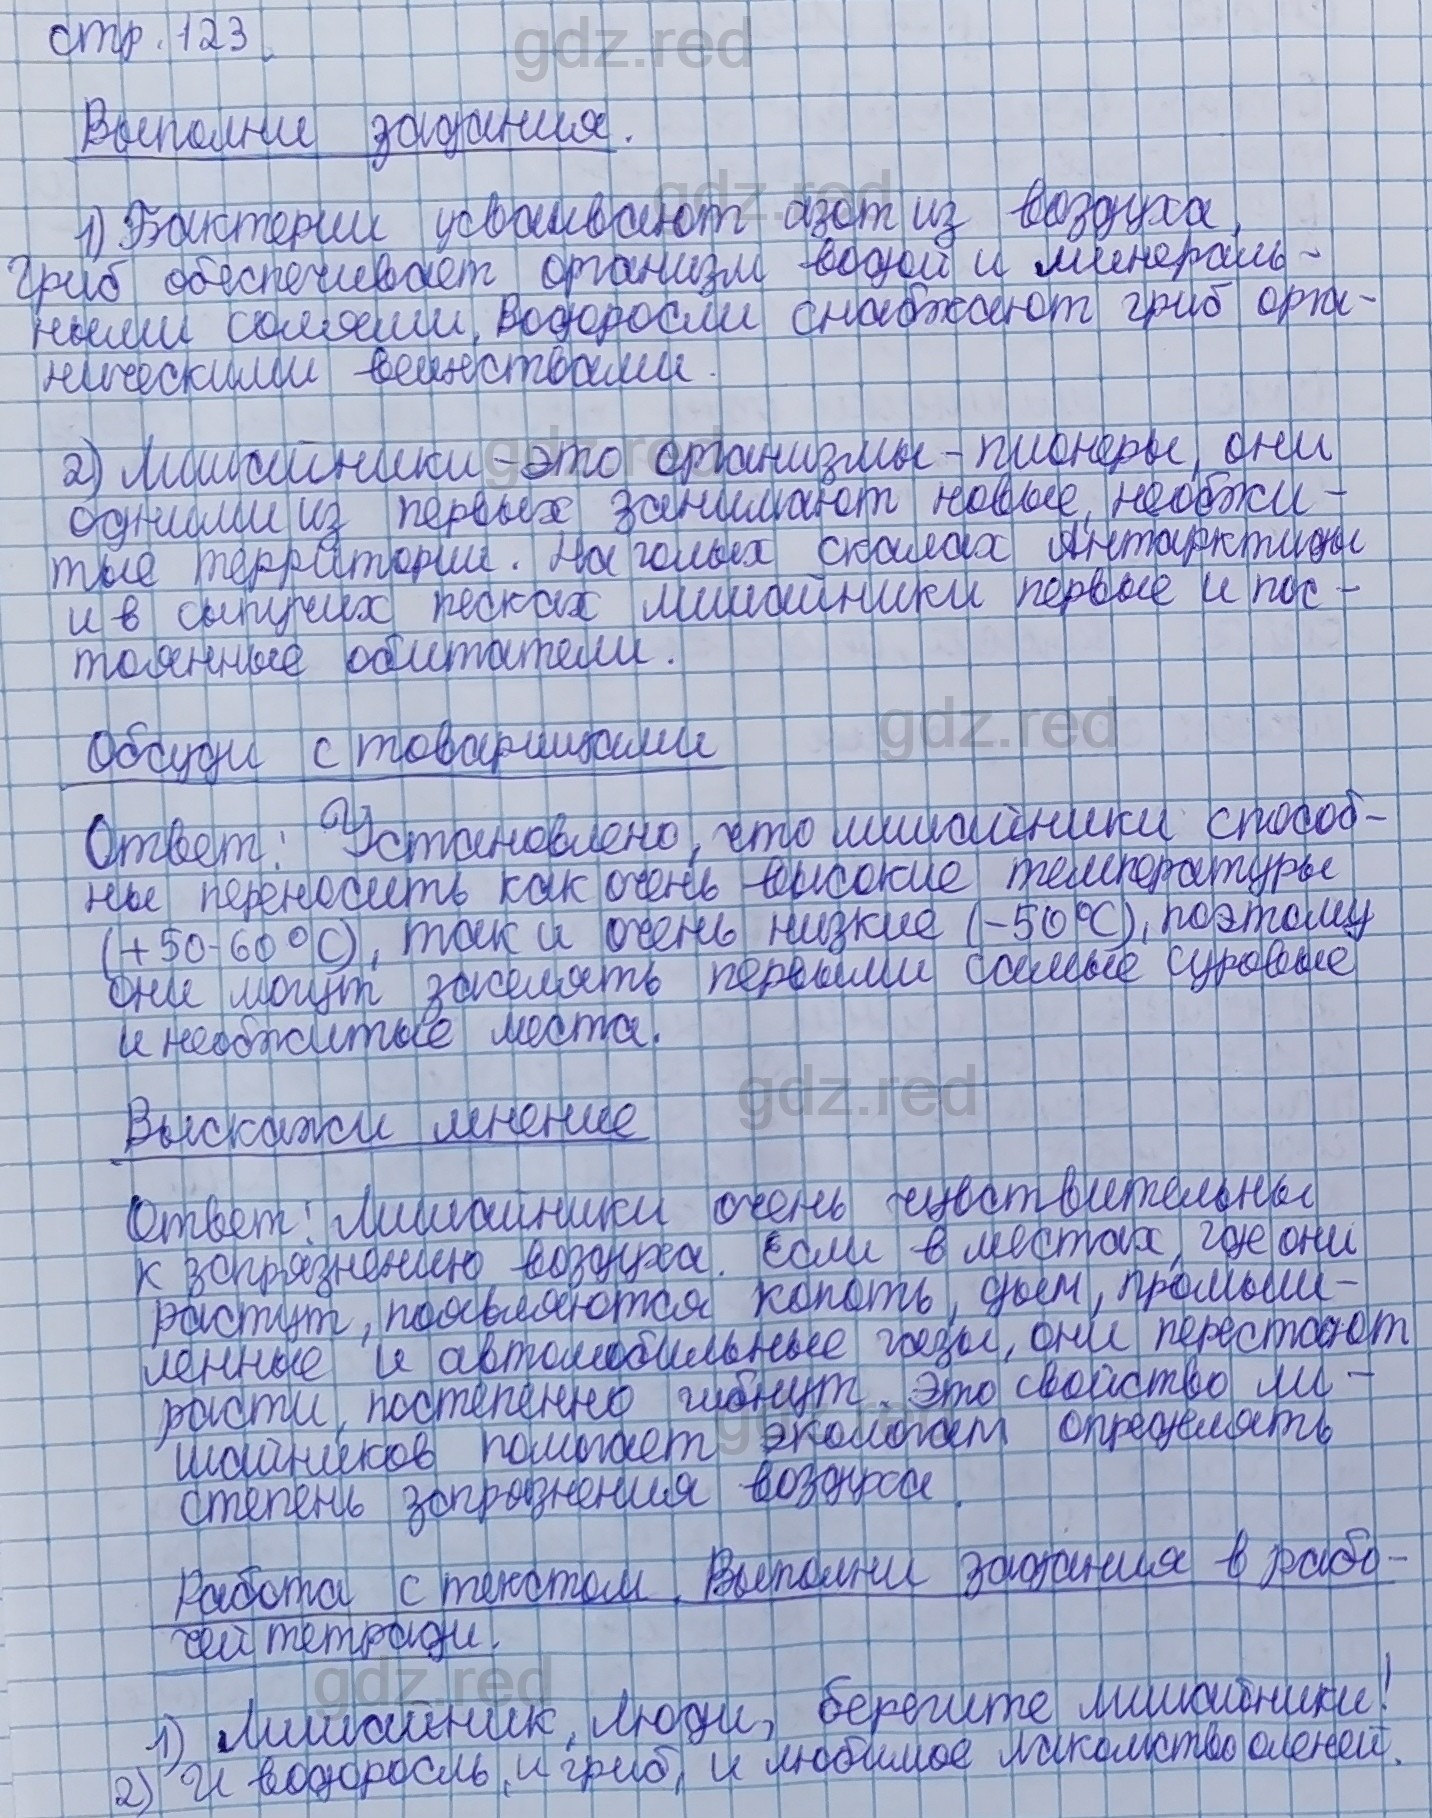 стр. 123.
gdz.red
Выполни задания.
gdz.red
1) Бактерии усваивают азот из воздуха,
гриб обеспечивает организм водой и минераль-
ными солями. Водоросли снабжают гриб орга-
ническими веществами.
gdz.red
2) Лишайники - это организмы - пионеры, они
одними из первых занимают новые, необжи-
тые территории. На голых скалах Антарктиды
и в сыпучих песках лишайники первые и пос-
тоянные обитатели.
gdz.red
Обсуди с товарищами
Ответ: Установлено, что лишайники способ-
ны переносить как очень высокие температуры
(+50-60°С), так и очень низкие (-50°С), поэтому
они могут заселять первыми самые суровые
и необжитые места.
gdz.red
Выскажи мнение
Ответ: Лишайники очень чувствительны
к загрязнению воздуха. Если в местах, где они
растут, появляются копоть, дым, промыш-
ленные и автомобильные газы, они перестают
расти, постепенно гибнут. Это свойство ли-
gdz.red
шайников помогает экологам определять
степень загрязнения воздуха.
Работа с текстом. Выполни задания в рабо-
чей тетради.
gdz.red
1) Лишайник, люди, берегите лишайники!
2) И водоросль, и гриб, и любимое лакомство оленей.